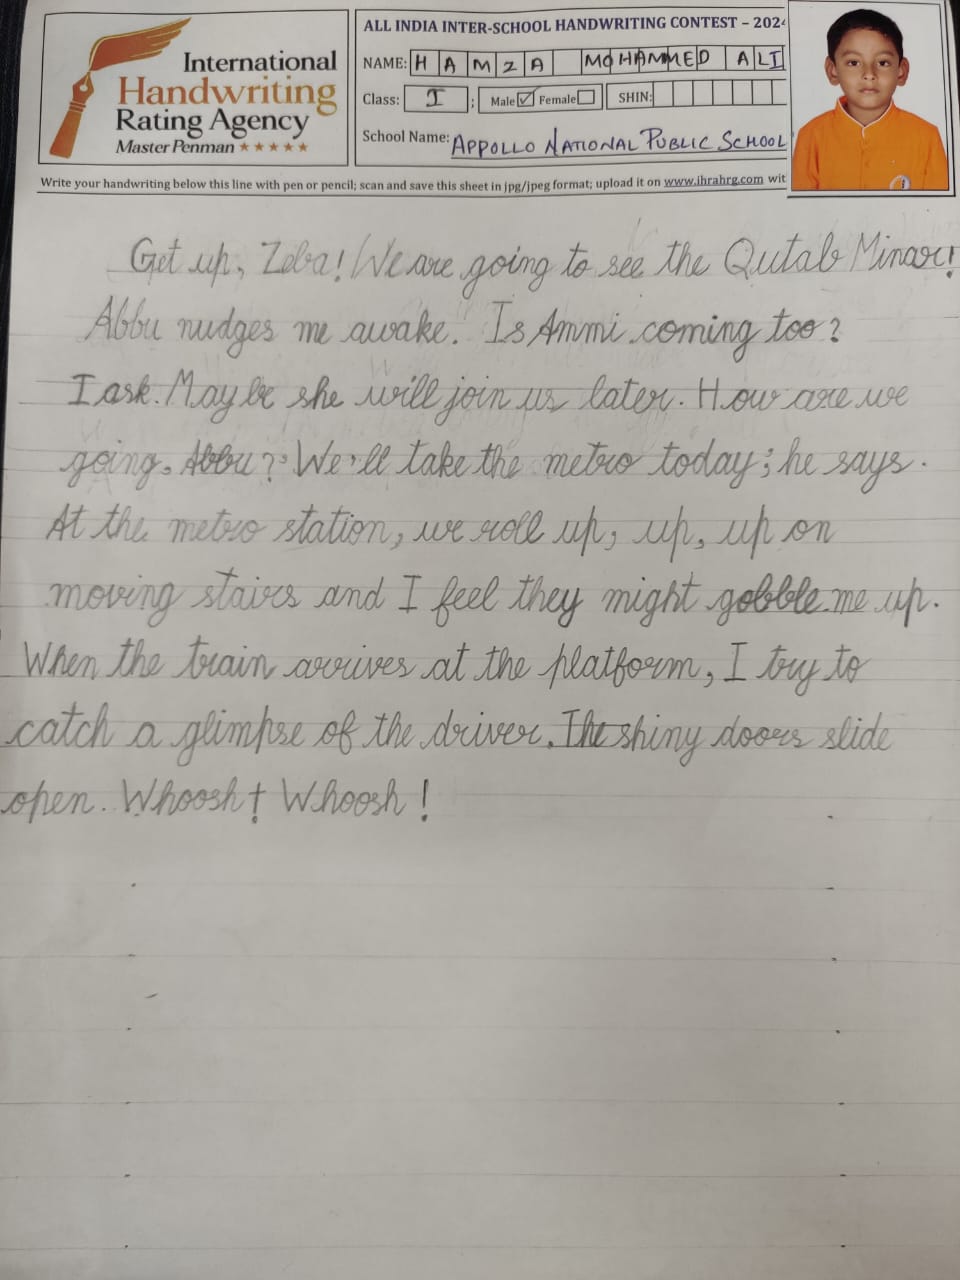 International
Handwriting
Rating Agency
Master Penman
ALL INDIA INTER-SCHOOL HANDWRITING CONTEST – 2024
NAME: HAMZA MOHAMMED ALI
Class: I ; Male Female SHIN:
School Name: APPOLLO NATIONAL PUBLIC SCHOOL
Write your handwriting below this line with pen or pencil; scan and save this sheet in jpg/jpeg format; upload it on www.ihrahrg.com wit
Get up, Zeba! We are going to see the Qutab Minar!
Abbu nudges me awake. Is Ammi coming too?
I ask. May be she will join us later. How are we
going. Abbu? We'll take the metro today; he says.
At the metro station, we roll up, up, up on
moving stairs and I feel they might gobble me up.
When the train arrives at the platform, I try to
catch a glimpse of the driver. The shiny doors slide
open. Whoosh! Whoosh!